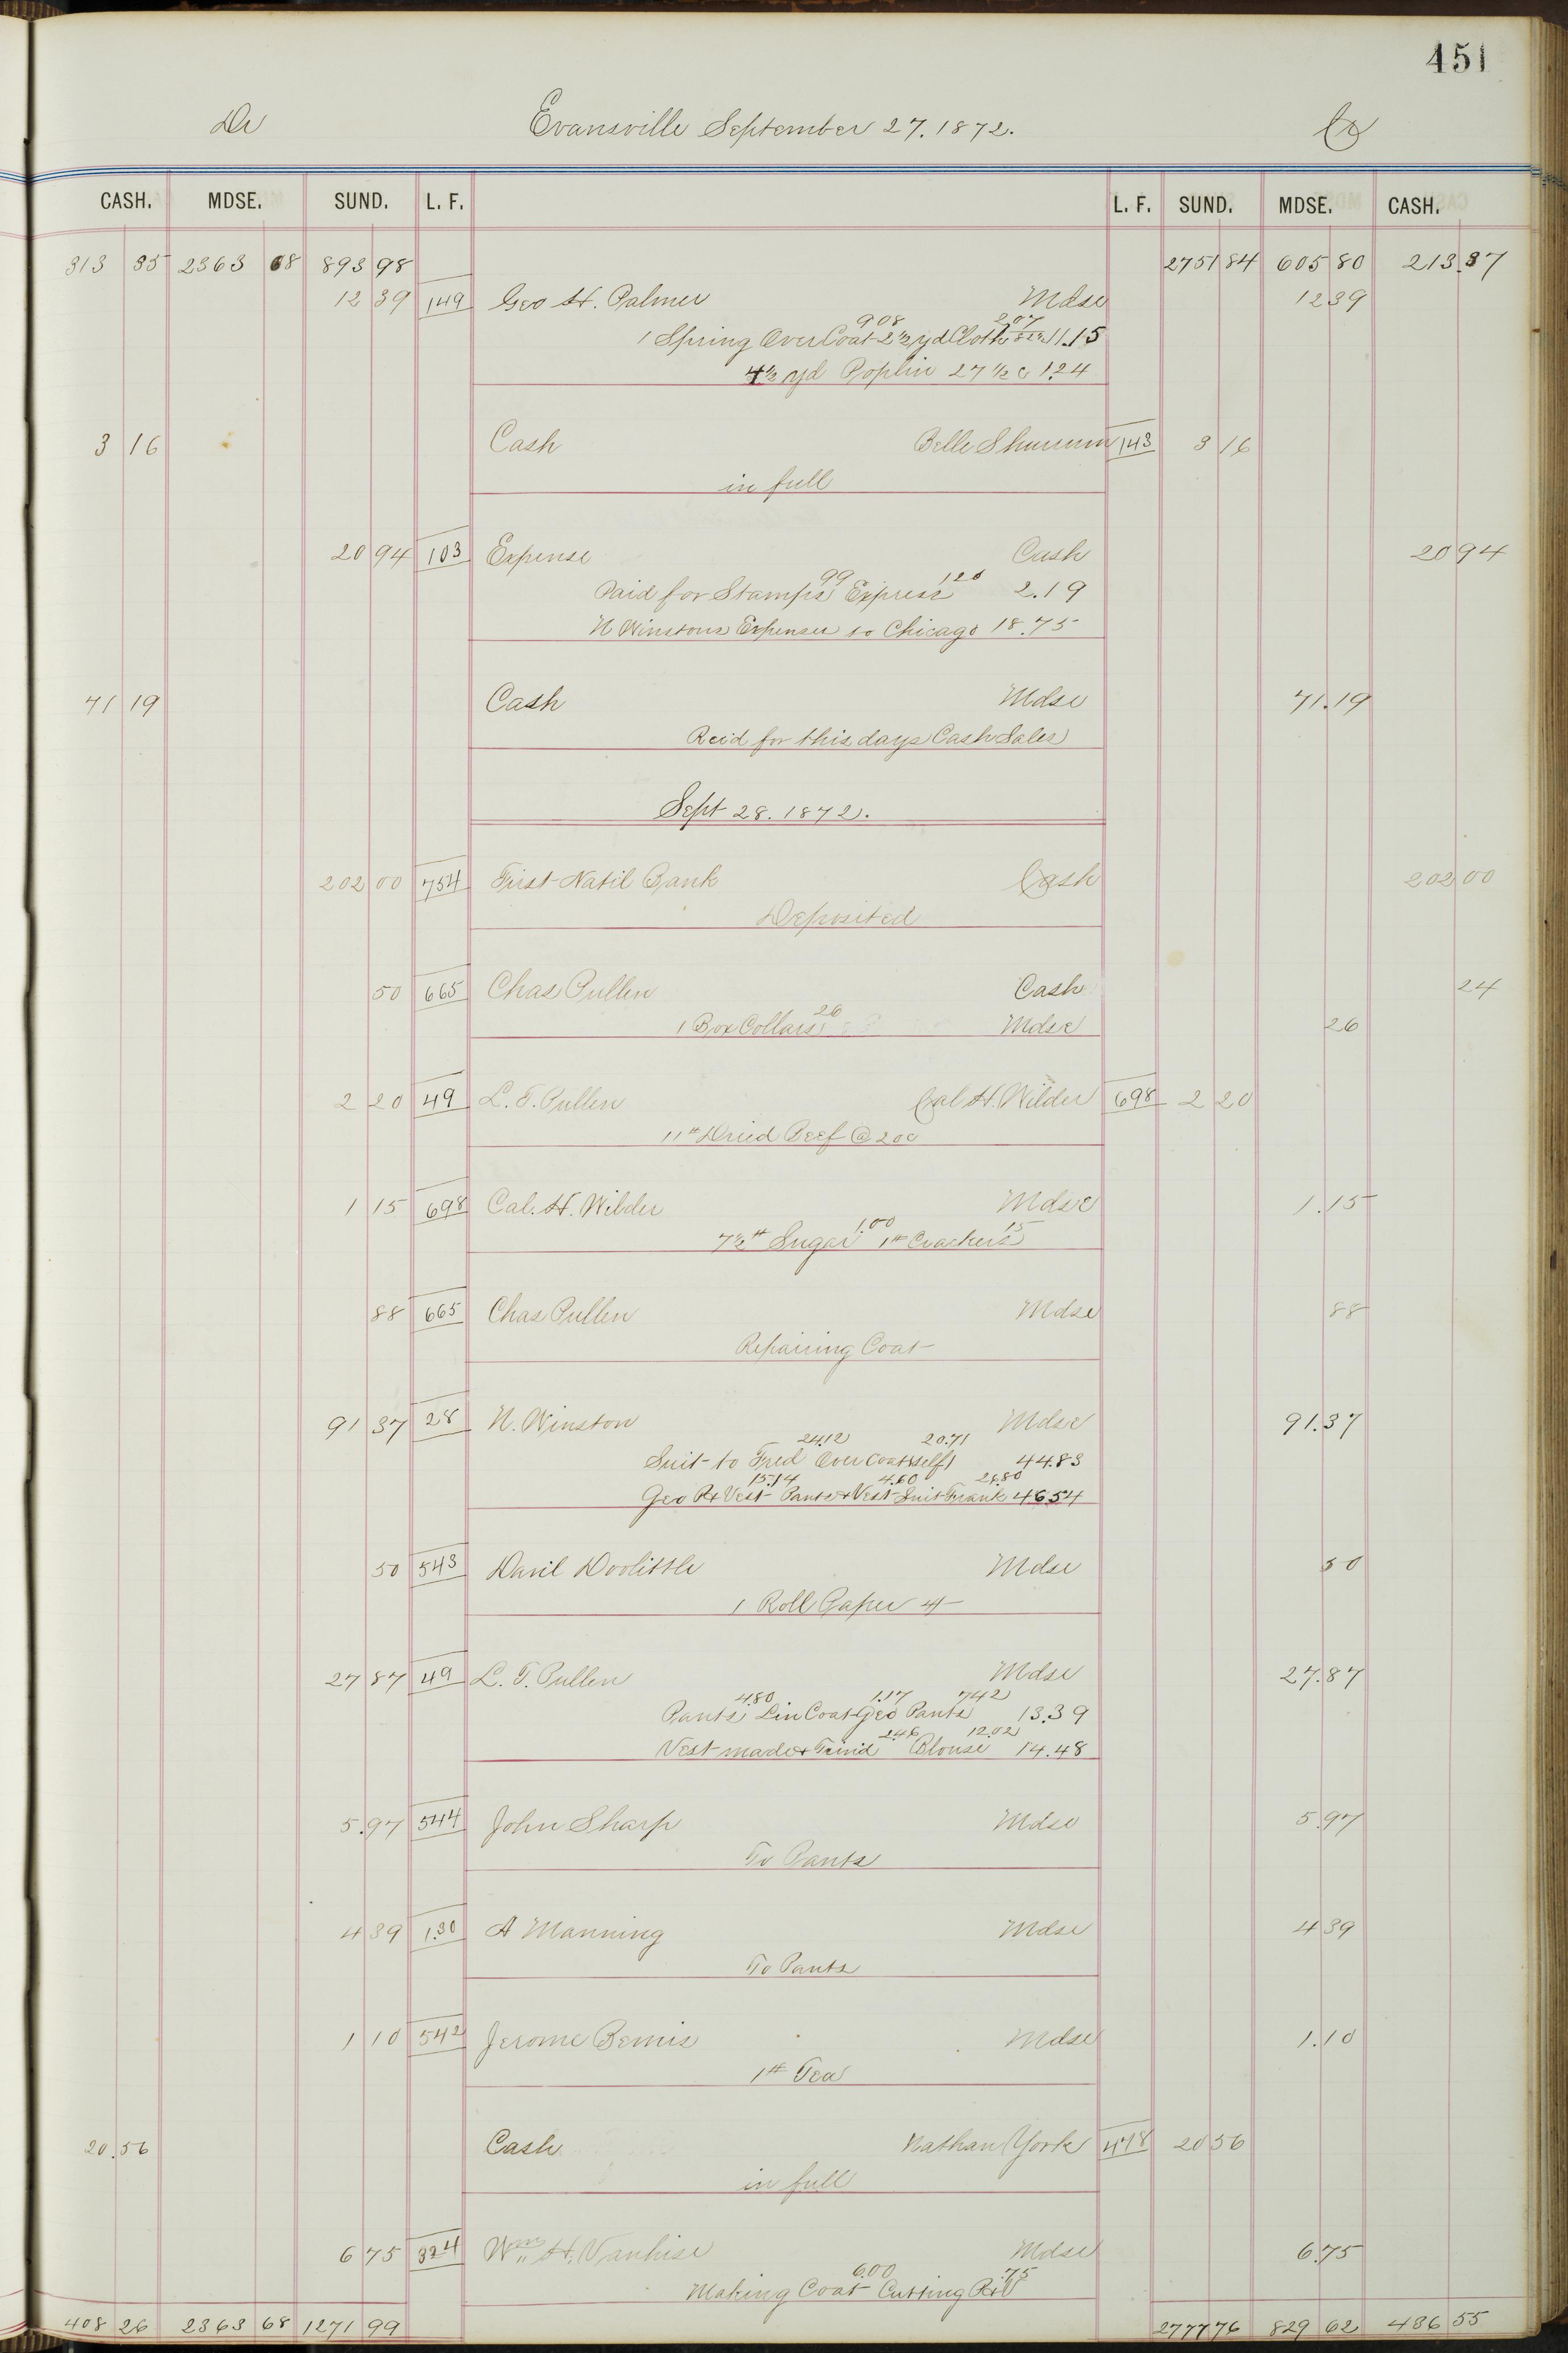 451
Dr Evansville September 27. 1872. Cr
CASH. MDSE. SUND. L. F. L. F. SUND. MDSE. CASH.
313 35 2363 68 893 98 2751 84 605 80 213.37
12 39 149 Geo H. Palmer Mdse 12 39
908 207
1 Spring Over Coat 2½ yd Cloth 82½ 11.15
4½ yd Poplin 27½ c 1.24
3 16 Cash Belle 143 3 16
in full
20 94 103 Expense Cash 20 94
99 120
Paid for Stamps Express 2.19
N Winstons Expenses to Chicago 18.75
71 19 Cash Mdse 71.19
Recd for this days Cash Sales
Sept 28. 1872.
202 00 754 First Natil Bank Cash 202 00
Deposited
50 665 Chas Pullen Cash 24
26
1 Box Collars Mdse 26
2 20 49 L. T. Pullen Cal H. Wilder 698 2 20
11# Dried Beef @ 20c
1 15 698 Cal. H. Wilder Mdse 1.15
1.00 15
7½# Sugar 1# Crackers
88 665 Chas Pullen Mdse 88
Repairing Coat
91 37 28 N. Winston Mdse 91.37
24.12 20.71
Suit to Fred Over Coat self 44.83
15.14 4.60 26.80
Geo P & Vest Pants & Vest Suit Frank 46.54
50 543 Danl Doolittle Mdse 50
1 Roll Paper 4
27 87 49 L. T. Pullen Mdse 27.87
4.80 1.17 742
Pants Lin Coat Geo Pants 13.39
2.46 12.02
Vest made & Trimd Blouse 14.48
5.97 544 John Sharp Mdse 5.97
To Pants
4 39 130 A Manning Mdse 4 39
To Pants
1 10 542 Jerome Bemis Mdse 1.10
1# Tea
20.56 Cash Nathan York 478 20 56
in full
6 75 324 Wm H. Vanhise Mdse 6.75
6.00 .75
Making Coat Cutting P & V
408 26 2363 68 1271 99 2777 76 829 62 436 55